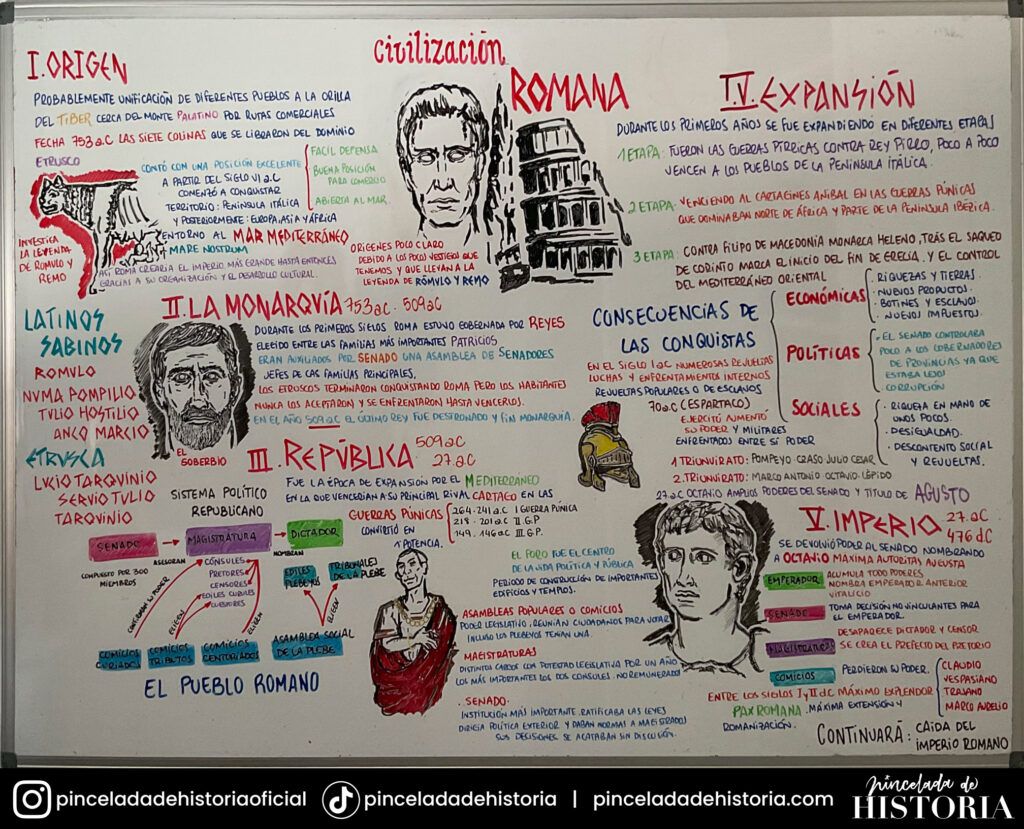 civilización
ROMANA
I. ORIGEN
PROBABLEMENTE UNIFICACIÓN DE DIFERENTES PUEBLOS A LA ORILLA
DEL TIBER CERCA DEL MONTE PALATINO POR RUTAS COMERCIALES
FECHA 753 a.C LAS SIETE COLINAS QUE SE LIBRARON DEL DOMINIO
ETRUSCO
CONTÓ CON UNA POSICIÓN EXCELENTE
A PARTIR DEL SIGLO VI a.C
COMENZÓ A CONQUISTAR
TERRITORIO: PENÍNSULA ITÁLICA
Y POSTERIORMENTE: EUROPA, ASIA Y ÁFRICA
ENTORNO AL MAR MEDITERRÁNEO
MARE NOSTRUM
FACIL DEFENSA
BUENA POSICIÓN
PARA COMERCIO
ABIERTA AL MAR.
INVESTIGA
LA LEYENDA
DE ROMULO Y
REMO
ASI ROMA CREARIA EL IMPERIO MÁS GRANDE HASTA ENTONCES
GRACIAS A SU ORGANIZACIÓN Y EL DESARROLLO CULTURAL.
ORIGENES POCO CLARO
DEBIDO A LOS POCO VESTIGIOS QUE
TENEMOS Y QUE LLEVAN A LA
LEYENDA DE RÓMULO Y REMO
II. LA MONARQUÍA 753 a.C - 509 a.C
DURANTE LOS PRIMEROS SIGLOS ROMA ESTUVO GOBERNADA POR REYES
ELEGIDO ENTRE LAS FAMILIAS MÁS IMPORTANTES PATRICIOS
ERAN AUXILIADOS POR SENADO UNA ASAMBLEA DE SENADORES
JEFES DE LAS FAMILIAS PRINCIPALES.
LOS ETRUSCOS TERMINARON CONQUISTANDO ROMA PERO LOS HABITANTES
NUNCA LOS ACEPTARON Y SE ENFRENTARON HASTA VENCERLOS.
EN EL AÑO 509 a.C EL ÚLTIMO REY FUE DESTRONADO Y FIN MONARQUÍA.
LATINOS
SABINOS
ROMULO
NUMA POMPILIO
TULIO HOSTILIO
ANCO MARCIO
ETRUSCA
LUCIO TARQUINIO
SERVIO TULIO
TARQUINIO
EL
SOBERBIO
III. REPÚBLICA 509 a.C
27 a.C
FUE LA ÉPOCA DE EXPANSIÓN POR EL MEDITERRANEO
EN LA QUE VENCERIAN A SU PRINCIPAL RIVAL CARTAGO EN LAS
GUERRAS PÚNICAS
264-241 a.C I GUERRA PÚNICA
218-201 a.C II G.P
149-146 a.C III G.P.
CONVIRTIÓ EN
POTENCIA.
SISTEMA POLÍTICO
REPUBLICANO
SENADO
MAGISTRATURA
DICTADOR
ASESORAN
NOMBRAN
COMPUESTO POR 300
MIEMBROS
CÓNSULES
PRETORES
CENSORES
EDILES CURULES
CUESTORES
EDILES
PLEBEYOS
TRIBUNALES
DE LA PLEBE
CONFIRMAN SU PODER
ELIGEN
ELIGEN
ELIGEN
COMICIOS
CURIADOS
COMICIOS
TRIBUTOS
COMICIOS
CENTURIADOS
ASAMBLEA SOCIAL
DE LA PLEBE
EL PUEBLO ROMANO
EL FORO FUE EL CENTRO
DE LA VIDA POLÍTICA Y PÚBLICA
PERIODO DE CONSTRUCCIÓN DE IMPORTANTES
EDIFICIOS Y TEMPLOS.
ASAMBLEAS POPULARES O COMICIOS
PODER LEGISLATIVO, REUNÍAN CIUDADANOS PARA VOTAR
INCLUSO LOS PLEBEYOS TENÍAN UNA.
MAGISTRATURAS
DISTINTOS CARGOS CON POTESTAD LEGISLATIVA POR UN AÑO
LOS MÁS IMPORTANTES LOS DOS CONSULES. NO REMUNERADO
. SENADO.
INSTITUCIÓN MÁS IMPORTANTE. RATIFICABA LAS LEYES
DIRIGIA POLÍTICA EXTERIOR Y DABAN NORMAS A MAGISTRADOS
SUS DECISIONES SE ACATABAN SIN DISCUSIÓN.
I.V. EXPANSIÓN
DURANTE LOS PRIMEROS AÑOS SE FUE EXPANDIENDO EN DIFERENTES ETAPAS
1 ETAPA: FUERON LAS GUERRAS PÍRRICAS CONTRA REY PIRRO, POCO A POCO
VENCEN A LOS PUEBLOS DE LA PENÍNSULA ITÁLICA.
2 ETAPA: VENCIENDO AL CARTAGINES ANIBAL EN LAS GUERRAS PÚNICAS
QUE DOMINABAN NORTE DE ÁFRICA Y PARTE DE LA PENÍNSULA IBÉRICA.
3 ETAPA: CONTRA FILIPO DE MACEDONIA MONARCA HELENO, TRÁS EL SAQUEO
DE CORINTO MARCA EL INICIO DEL FIN DE GRECIA, Y EL CONTROL
DEL MEDITERRÁNEO ORIENTAL
CONSECUENCIAS DE
LAS CONQUISTAS
ECONÓMICAS
. RIQUEZAS Y TIERRAS.
. NUEVOS PRODUCTOS.
. BOTINES Y ESCLAVOS.
. NUEVOS IMPUESTOS.
POLÍTICAS
. EL SENADO CONTROLABA
POCO A LOS GOBERNADORES
DE PROVINCIAS YA QUE
ESTABA LEJOS
CORRUPCIÓN
SOCIALES
. RIQUEZA EN MANO DE
UNOS POCOS.
. DESIGUALDAD.
. DESCONTENTO SOCIAL
Y REVUELTAS.
EN EL SIGLO I a.C NUMEROSAS REVUELTAS
LUCHAS Y ENFRENTAMIENTOS INTERNOS
REVUELTAS POPULARES O DE ESCLAVOS
70 a.C (ESPARTACO)
EJERCITO AUMENTÓ
SU PODER Y MILITARES
ENFRENTADOS ENTRE SÍ PODER
1 TRIUNVIRATO: POMPEYO CRASO JULIO CESAR
2. TRIUNVIRATO: MARCO ANTONIO OCTAVIO LÉPIDO
27 a.C OCTAVIO AMPLIOS PODERES DEL SENADO Y TITULO DE AGUSTO
V. IMPERIO 27 a.C
476 d.C
SE DEVOLVIÓ PODER AL SENADO NOMBRANDO
A OCTAVIO MÁXIMA AUTORITAS AUGUSTA
EMPERADOR
ACUMULA TODO PODERES
NOMBRA EMPERADOR ANTERIOR
VITALICIO
SENADO
TOMA DECISIÓN NO VINCULANTES PARA
EL EMPERADOR.
MAGISTRATURAS
DESAPARECE DICTADOR Y CENSOR
SE CREA EL PREFECTO DEL PRETORIO
COMICIOS
PERDIERON SU PODER.
ENTRE LOS SIGLOS I y II d.C MÁXIMO EXPLENDOR
PAX ROMANA. MÁXIMA EXTENSIÓN Y
ROMANIZACIÓN.
CLAUDIO
VESPASIANO
TRAJANO
MARCO AURELIO
CONTINUARÁ: CAIDA DEL
IMPERIO ROMANO
pinceladadehistoriaoficial
pinceladadehistoria | pinceladadehistoria.com
pincelada de
HISTORIA